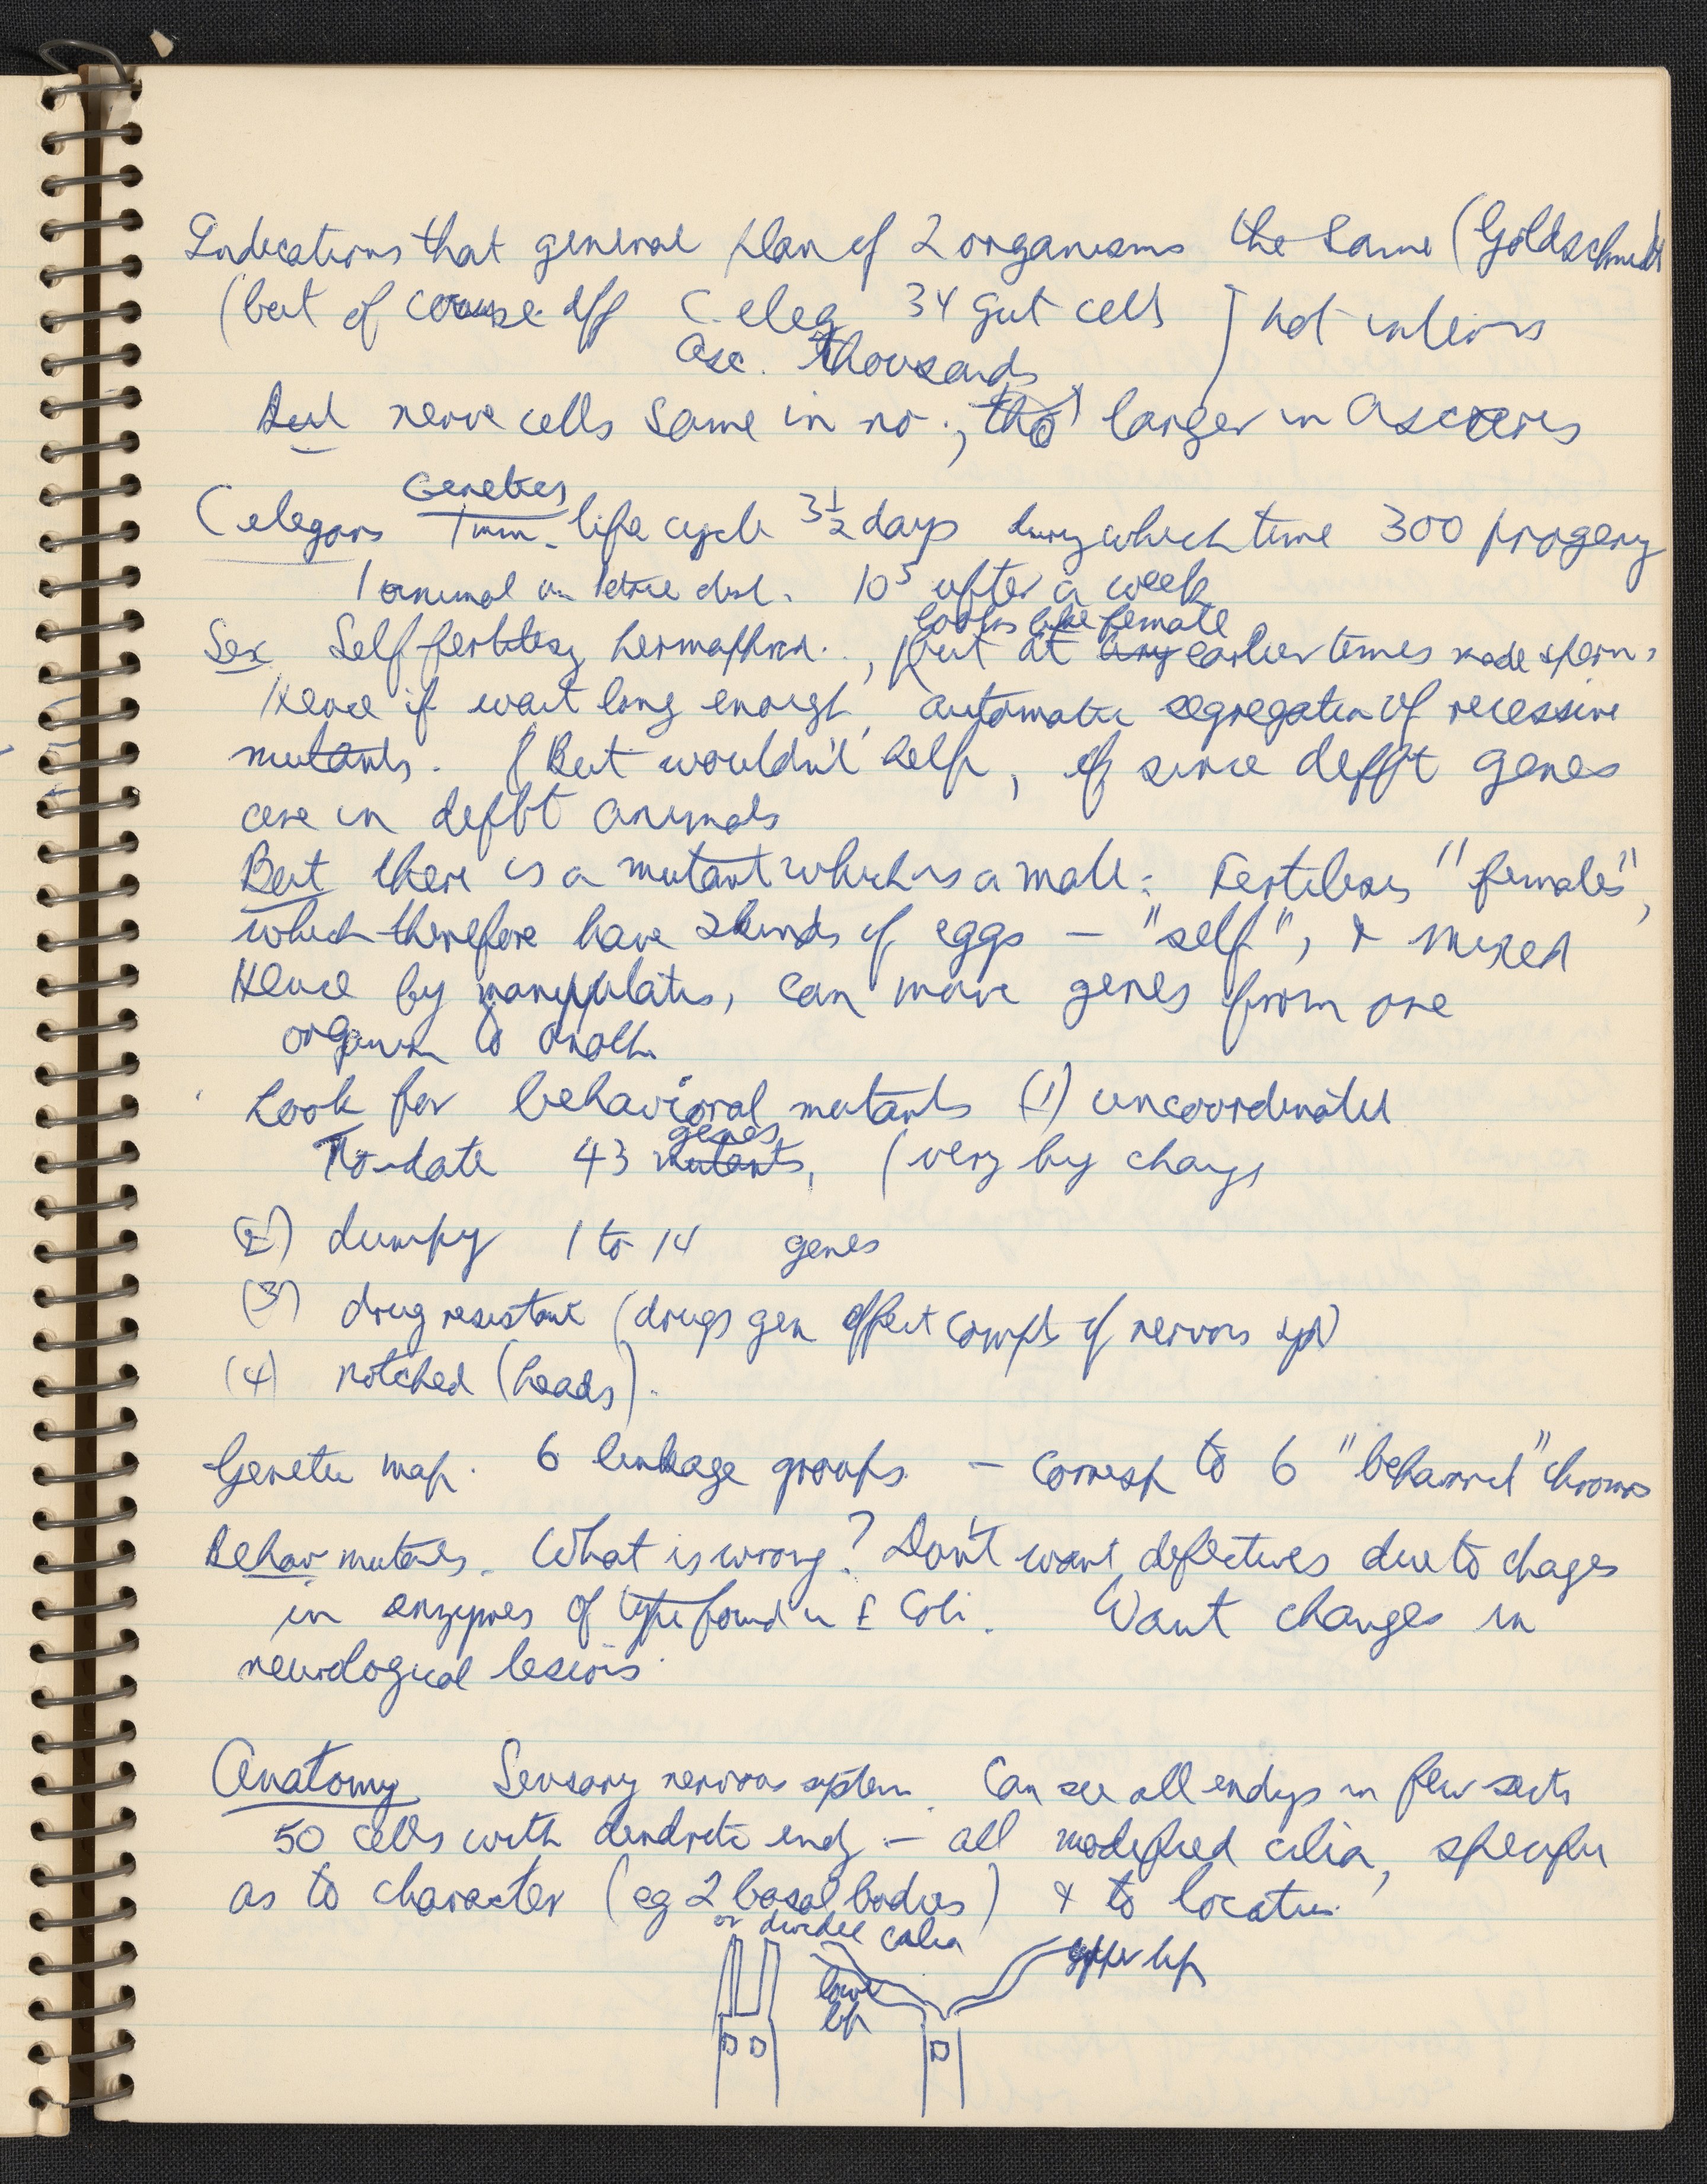 Indications that general plan of 2 organisms the same (Goldschmidt
(but of course diff C. eleg 34 gut cells ] not
Asc. thousands
But nerve cells same in no., tho larger in Ascaris
Genetics
C elegans 1 mm - life cycle 3½ days during which time 300 progeny
1 animal in petrie dish. 10⁵ after a week
looks like female
Sex Self fertilizg hermaphrod., but at earlier times made sperm,
Hence if wait long enough, automatic segregation of recessive
mutants. (But wouldn't help, if since defft genes
are in defft animals
But there is a mutant which is a male: Fertilizes "females",
which therefore have 2 kinds of eggs – "self", & mixed
Hence by manipulatn, can move genes from one
organism to anoth.
Look for behavioral mutants (1) uncoordinated
genes
To-date 43 mutants, (very big changs
(2) dumpy 1 to 14 genes
(3) drug resistant (drugs gen affect compts of nervous sys)
(4) notched (heads).
Genetic map. 6 linkage groups – corresp to 6 "behavrl" chroms
Behav mutants. What is wrong? Don't want defectives due to chages
in enzymes of type found in E Coli. Want changes in
neurological lesions.
Anatomy Sensory nervous system. Can see all endgs in few sects
50 cells with dendritic endg – all modified cilia, specific
as to character (eg 2 basal bodies) & to locatn.
or divided cilia
upper lip
lower
lip